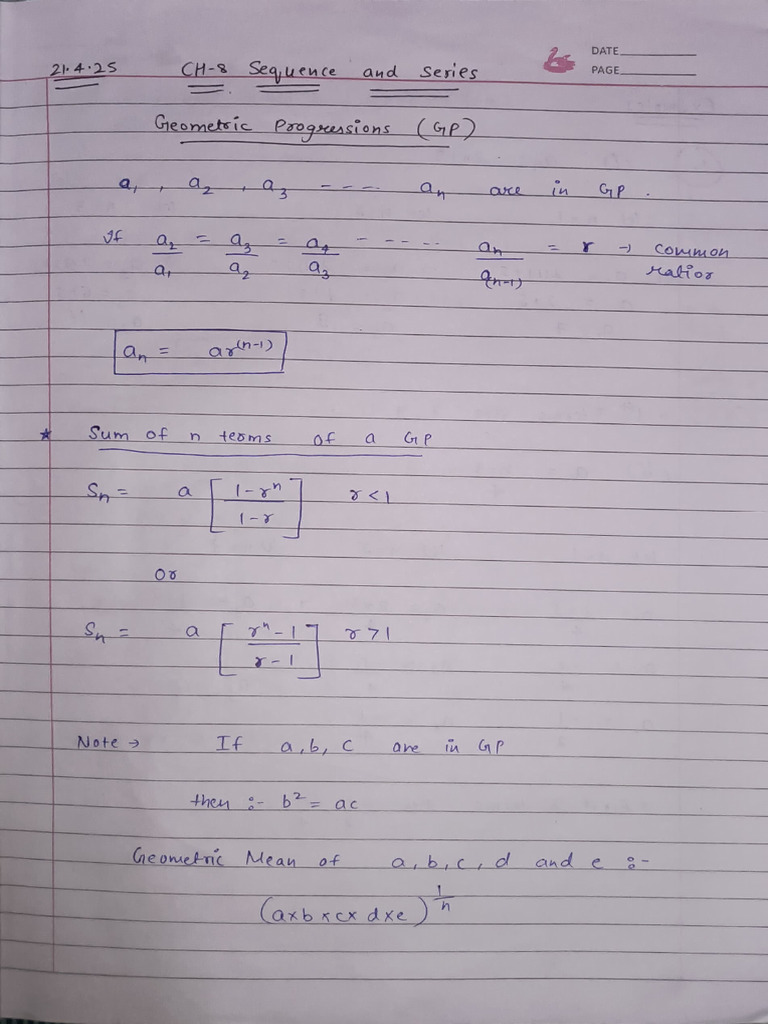 DATE
PAGE
21.4.25 CH-8 Sequence and Series
Geometric Progressions (GP)
a₁, a₂, a₃ ---- aₙ are in GP.
If a₂/a₁ = a₃/a₂ = a₄/a₃ ----- aₙ/a₍ₙ₋₁₎ = r → common
ratior
aₙ = ar⁽ⁿ⁻¹⁾
★ Sum of n terms of a GP
Sₙ = a [(1-rⁿ)/(1-r)] r<1
Or
Sₙ = a [(rⁿ-1)/(r-1)] r>1
Note → If a,b,c are in GP
then :- b² = ac
Geometric Mean of a,b,c,d and e :-
(a×b×c×d×e)^(1/n)